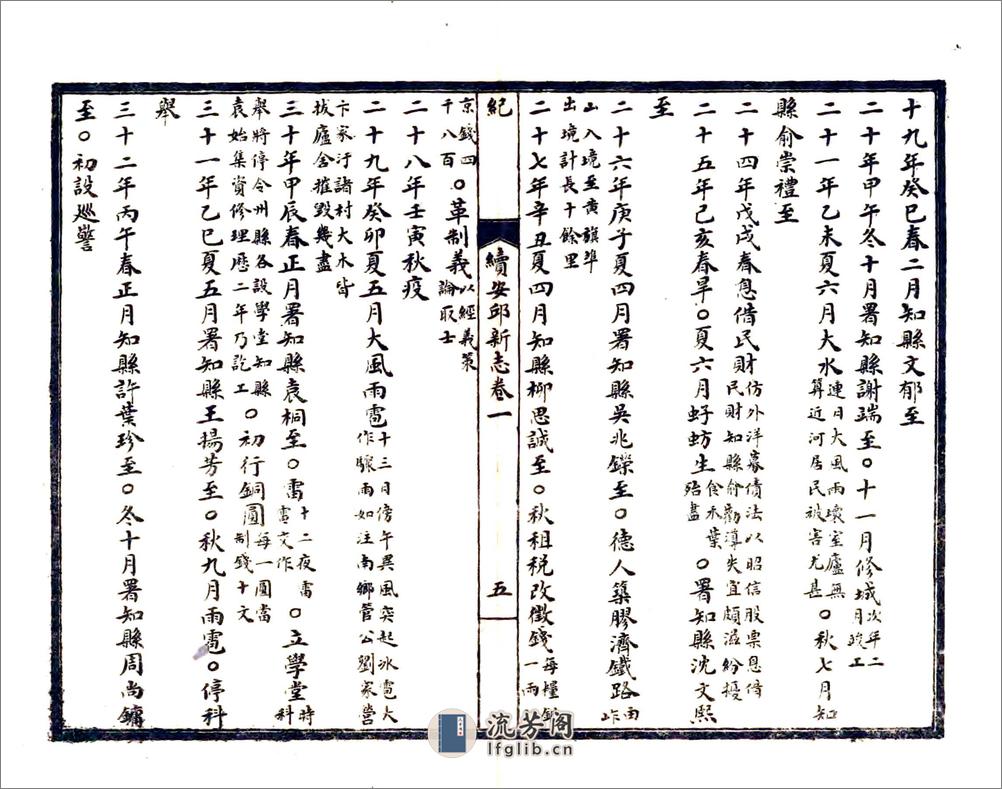 十九年癸巳春二月知縣文郁至
二十年甲午冬十月署知縣謝瑞至○十一月修城次年二月竣工
二十一年乙未夏六月大水連日大風雨壞室廬無算近河居民被害尤甚○秋七月知
縣俞崇禮至
二十四年戊戌春息借民財仿外洋募債法以昭信股票息借民財知縣俞勸導失宜頗滋紛擾
二十五年己亥春旱○夏六月蚜蚄生食禾葉殆盡○署知縣沈文熙
至
二十六年庚子夏四月署知縣吳兆鑅至○德人築膠濟鐵路由岞
山入境至黃旗埠出境計長十餘里
二十七年辛丑夏四月知縣柳思誠至○秋租稅改徵錢每糧銀一兩
紀
續安邱新志卷一
五
京錢四千八百○革制義以經義策論取士
二十八年壬寅秋疫
二十九年癸卯夏五月大風雨雹十三日傍午異風突起冰雹大作驟雨如注南鄉管公劉家營
卞家汙諸村大木皆拔廬舍摧毀幾盡
三十年甲辰春正月署知縣袁桐至○雷十二夜雷電交作○立學堂時科
舉將停令州縣各設學堂知縣袁始集資修理歷二年乃訖工○初行銅圓每一圓當制錢十文
三十一年乙巳夏五月署知縣王揚芳至○秋九月雨雹○停科
舉
三十二年丙午春正月知縣許葉珍至○冬十月署知縣周尚鏞
至○初設巡警
流芳阁
lfglib.cn